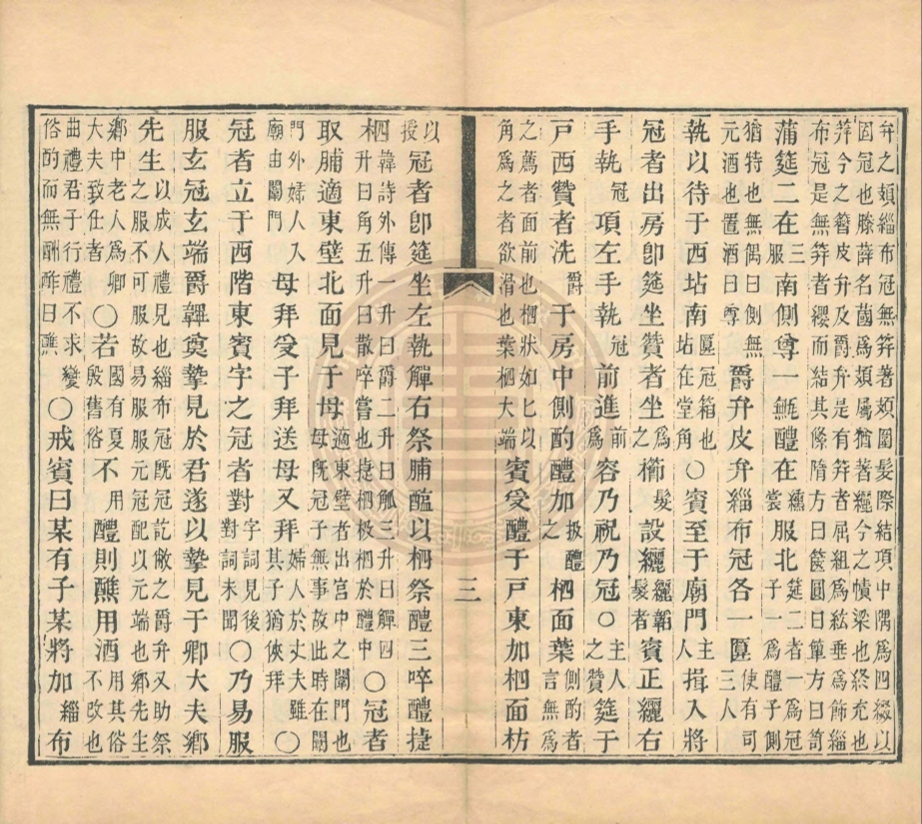 弁之頍緇布冠無笄著頍圍髮際結項中隅為四綴以
固冠也滕薛名蔮為頍屬猶著纚今之幘梁也終充也
笄今之簪皮弁及爵弁是有笄者屈組為紘垂為飾緇
布冠是無笄者纓而結其絛隋方曰篋圓曰簞方曰笥
蒲筵二在三服南側尊一甒醴在纁裳服北筵二者一為冠子一為醴子側
猶特也無偶曰側無元酒也置酒曰尊爵弁皮弁緇布冠各一匴使有司三人
執以待于西坫南匴冠箱也坫在堂角○賓至于廟門主人揖入將
冠者出房卽筵坐贊者坐為之櫛髮設纚纚韜髮者賓正纚右
手執冠項左手執冠前進前為容乃祝乃冠○主人之贊筵于
戶西贊者洗爵于房中側酌醴加扱醴之柶面葉側酌者言無為
之薦者面前也柶狀如匕以角為之者欲滑也葉柶大端賓受醴于戶東加柶面枋
三
以授冠者卽筵坐左執觶右祭脯醢以柶祭醴三啐醴捷
柶韓詩外傳一升曰爵二升曰觚三升曰觶四升曰角五升曰散啐嘗也捷柶扱柶於醴中○冠者
取脯適東壁北面見于母適東壁者出宮中之闈門也母旣冠子無事故此時在闈
門外婦人入廟由闈門母拜受子拜送母又拜婦人於丈夫雖其子猶俠拜○
冠者立于西階東賓字之冠者對字詞見後對詞未聞○乃易服
服玄冠玄端爵韠奠摯見於君遂以摯見于卿大夫鄉
先生以成人禮見也緇布冠旣冠訖敝之爵弁又助祭之服不可服故易服服元冠配以元端也鄉先生
鄉中老人為卿大夫致仕者○若國有夏殷舊俗不用醴則醮用酒用其俗不改也
曲禮君子行禮不求變俗酌而無酬酢曰醮○戒賓曰某有子某將加緇布